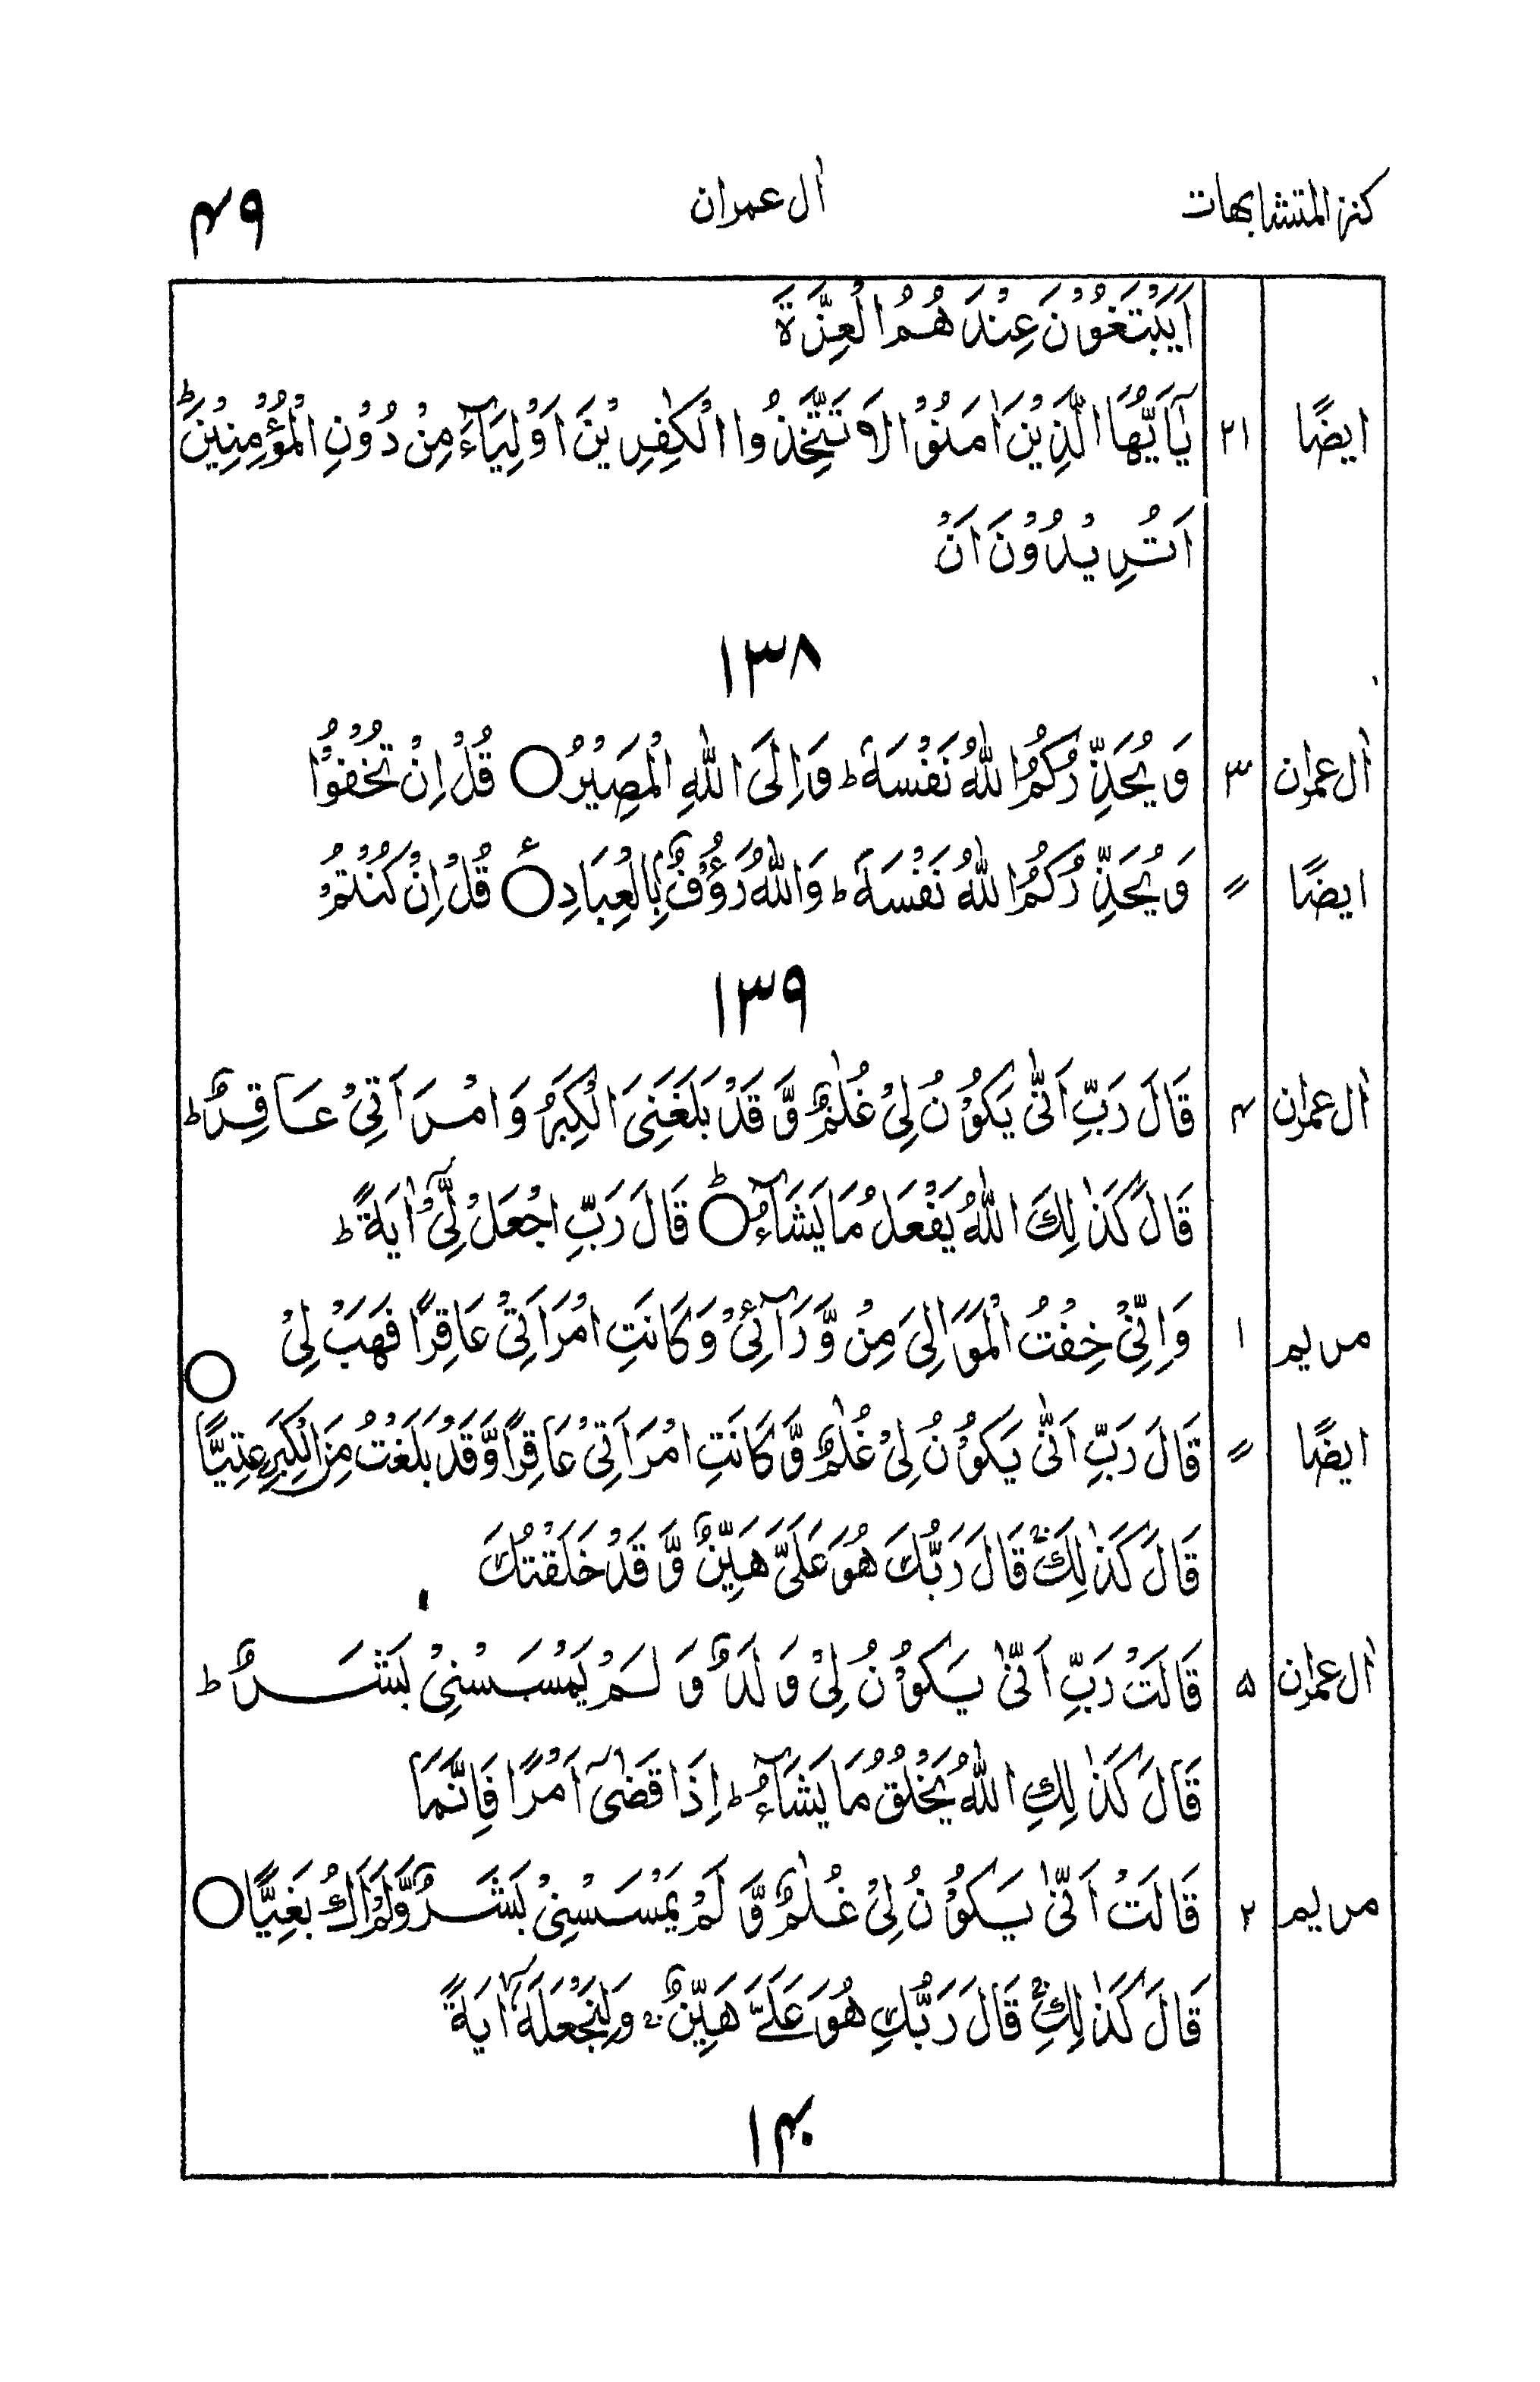 كنز المتشابهات اٰل عمران ۴۹
اَيَبْتَغُوْنَ عِنْدَهُمُ الْعِزَّةَ
ايضًا ۲۱ يٰۤاَيُّهَا الَّذِيْنَ اٰمَنُوْا لَا تَتَّخِذُوا الْكٰفِرِيْنَ اَوْلِيَآءَ مِنْ دُوْنِ الْمُؤْمِنِيْنَ ؕ
اَتُرِيْدُوْنَ اَنْ
۱۳۸
اٰل عمران ۳ وَيُحَذِّرُكُمُ اللّٰهُ نَفْسَهٗ ؕ وَاِلَى اللّٰهِ الْمَصِيْرُ ○ قُلْ اِنْ تُخْفُوْا
ايضًا 〃 وَيُحَذِّرُكُمُ اللّٰهُ نَفْسَهٗ ؕ وَاللّٰهُ رَءُوْفٌۢ بِالْعِبَادِ ○ ع قُلْ اِنْ كُنْتُمْ
۱۳۹
اٰل عمران ۴ قَالَ رَبِّ اَنّٰى يَكُوْنُ لِيْ غُلٰمٌ وَّقَدْ بَلَغَنِيَ الْكِبَرُ وَامْرَاَتِيْ عَاقِرٌ ؕ
قَالَ كَذٰلِكَ اللّٰهُ يَفْعَلُ مَا يَشَآءُ ○ؕ قَالَ رَبِّ اجْعَلْ لِّيْۤ اٰيَةً ؕ
مريم ۱ وَاِنِّيْ خِفْتُ الْمَوَالِيَ مِنْ وَّرَآئِيْ وَكَانَتِ امْرَاَتِيْ عَاقِرًا فَهَبْ لِيْ
ايضًا 〃 قَالَ رَبِّ اَنّٰى يَكُوْنُ لِيْ غُلٰمٌ وَّكَانَتِ امْرَاَتِيْ عَاقِرًا وَّقَدْ بَلَغْتُ مِنَ الْكِبَرِ عِتِيًّا ○
قَالَ كَذٰلِكَ ۚ قَالَ رَبُّكَ هُوَ عَلَيَّ هَيِّنٌ وَّقَدْ خَلَقْتُكَ
اٰل عمران ۵ قَالَتْ رَبِّ اَنّٰى يَكُوْنُ لِيْ وَلَدٌ وَلَمْ يَمْسَسْنِيْ بَشَرٌ ؕ
قَالَ كَذٰلِكِ اللّٰهُ يَخْلُقُ مَا يَشَآءُ ؕ اِذَا قَضٰۤى اَمْرًا فَاِنَّمَا
مريم ۲ قَالَتْ اَنّٰى يَكُوْنُ لِيْ غُلٰمٌ وَّلَمْ يَمْسَسْنِيْ بَشَرٌ وَّلَمْ اَكُ بَغِيًّا ○
قَالَ كَذٰلِكِ ۚ قَالَ رَبُّكِ هُوَ عَلَيَّ هَيِّنٌ ۚ وَلِنَجْعَلَهٗۤ اٰيَةً
۱۴۰